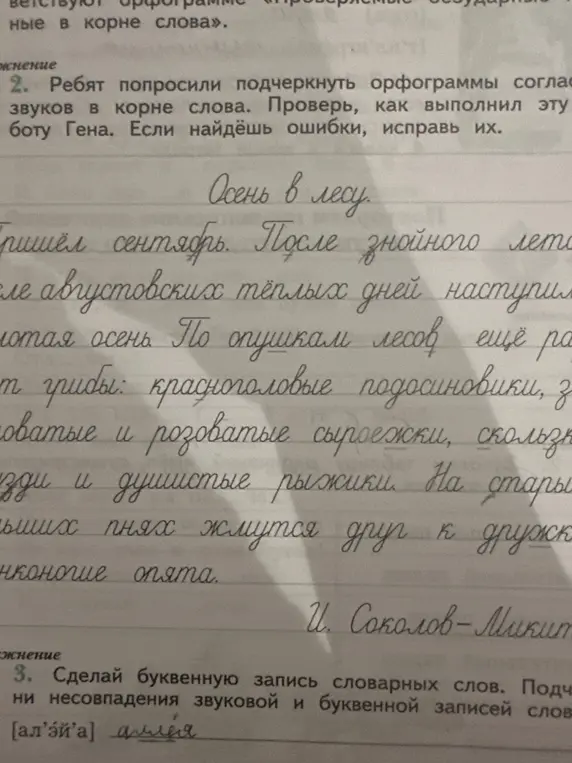 ветствуют орфограмме «Проверяемые безударные
ные в корне слова».
жнение
2. Ребят попросили подчеркнуть орфограммы соглас
звуков в корне слова. Проверь, как выполнил эту
боту Гена. Если найдёшь ошибки, исправь их.
Осень в лесу.
Пришёл сентябрь. После знойного лета
сле августовских тёплых дней наступил
лотая осень. По опушкам лесов ещё ра
ут грибы: красноголовые подосиновики, з
новатые и розоватые сыроежки, скользк
узди и душистые рыжики. На стары
льших пнях жмутся друг к дружк
нконогие опята.
И. Соколов-Микит
жнение
3. Сделай буквенную запись словарных слов. Подч
ни несовпадения звуковой и буквенной записей слов
[ал'эй'а] аллея